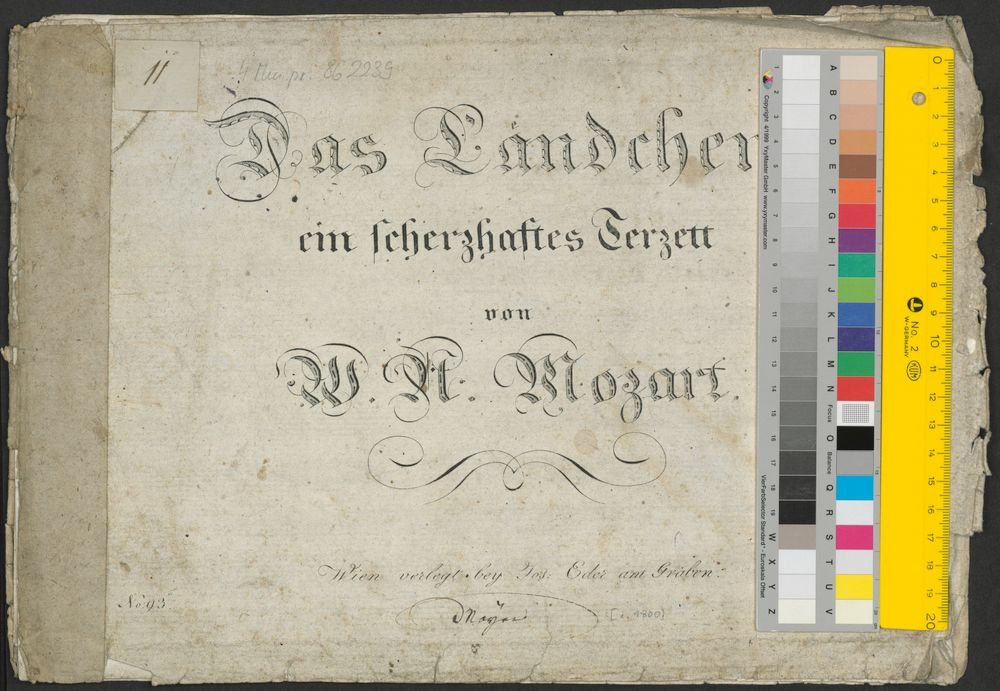 11
4 Mus.pr. 86.2239
Das Bandchen
ein scherzhaftes Terzett
von
W. A. Mozart.
Wien verlegt bey Jos: Eder am Graben.
No 93
[1800]
Copyright 4/1999 YxyMaster GmbH www.yxymaster.com
VierFarbSelector Standard* - Euroskala Offset
1
2
3
4
5
6
7
8
9
10
11
12
13
14
15
16
17
18
19
W
X
Y
Z
A
B
C
D
E
F
G
H
I
J
K
L
M
N
Focus
O
Balance
Q
R
S
T
U
V
0
1
2
3
4
5
6
7
8
9
10
11
12
13
14
15
16
17
18
19
20
No. 2
W-GERMANY
KUM